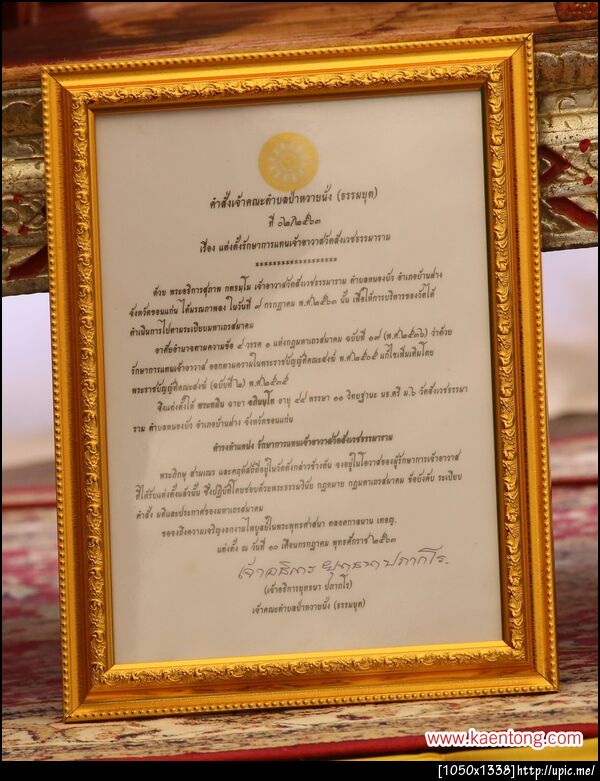 คำสั่งเจ้าคณะตำบลป่าหวายนั่ง (ธรรมยุต)
ที่ ๐๒/๒๕๖๓
เรื่อง แต่งตั้งรักษาการแทนเจ้าอาวาสวัดสังเวชธรรมาราม
********************
ด้วย พระอธิการสุภาพ กตธมฺโม เจ้าอาวาสวัดสังเวชธรรมาราม ตำบลหนองบัว อำเภอบ้านฝาง
จังหวัดขอนแก่น ได้มรณภาพลง ในวันที่ ๙ กรกฎาคม พ.ศ.๒๕๖๓ นั้น เพื่อให้การบริหารของวัดได้
ดำเนินการไปตามระเบียบมหาเถรสมาคม
อาศัยอำนาจตามความข้อ ๔ วรรค ๑ แห่งกฎมหาเถรสมาคม ฉบับที่ ๑๙ (พ.ศ.๒๕๓๖) ว่าด้วย
รักษาการแทนเจ้าอาวาส ออกตามความในพระราชบัญญัติคณะสงฆ์ พ.ศ.๒๕๐๕ แก้ไขเพิ่มเติมโดย
พระราชบัญญัติคณะสงฆ์ (ฉบับที่ ๒) พ.ศ.๒๕๓๕
จึงแต่งตั้งให้ พระทมิน ฉายา อายุ ๔๔ พรรษา ๑๑ วิทยฐานะ นธ.ตรี ม.๖ วัดสังเวชธรรมา
ราม ตำบลหนองบัว อำเภอบ้านฝาง จังหวัดขอนแก่น
ดำรงตำแหน่ง รักษาการแทนเจ้าอาวาสวัดสังเวชธรรมาราม
พระภิกษุ สามเณร และคฤหัสถ์ที่อยู่ในวัดดังกล่าวข้างต้น จงอยู่ในโอวาสของผู้รักษาการเจ้าอาวาส
ที่ได้รับแต่งตั้งแล้วนั้น ซึ่งปฏิบัติโดยชอบด้วยพระธรรมวินัย กฎหมาย กฎมหาเถรสมาคม ข้อบังคับ ระเบียบ
คำสั่ง มติและประกาศของมหาเถรสมาคม
ขอจงถึงความเจริญงอกงามไพบูลย์ในพระพุทธศาสนา ตลอดกาลนาน เทอญ.
แต่งตั้ง ณ วันที่ ๑๐ เดือนกรกฎาคม พุทธศักราช ๒๕๖๓
เจ้าอธิการ ยุทธนา ปภากโร
(เจ้าอธิการยุทธนา ปภากโร)
เจ้าคณะตำบลป่าหวายนั่ง (ธรรมยุต)
www.kaentong.com
[1050x1338]http://upic.me/